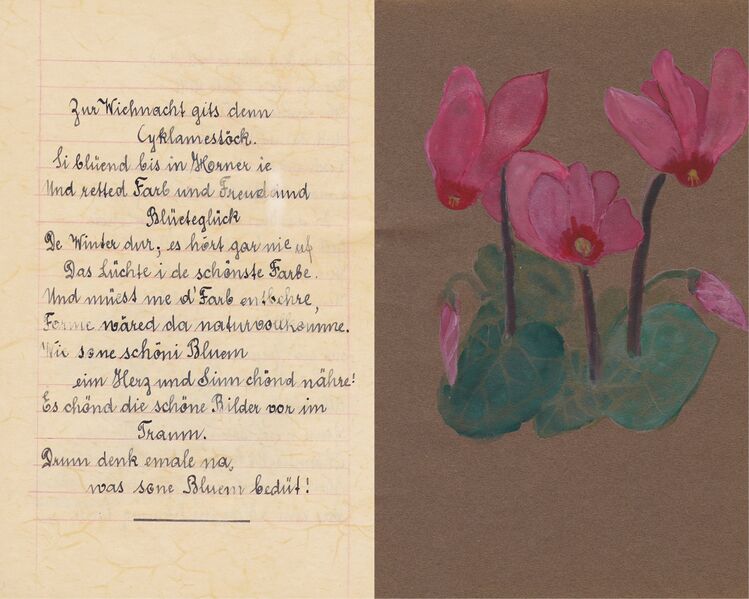 Zur Wiehnacht gits denn
Cyklamestöck.
Si blüend bis in Horner ie
Und retted Farb und Freud und
Blüeteglück
De Winter dur, es hört gar nie uf
Das Lüchte i de schönste Farbe.
Und müest me d'Farb entbehre,
Forme wäred da naturvollkomme.
Wie sone schöni Bluem
eim Herz und Sinn chönd nähre!
Es chönd die schöne Bilder vor im
Traum.
Drum denk emale na,
was sone Bluem bedüt!